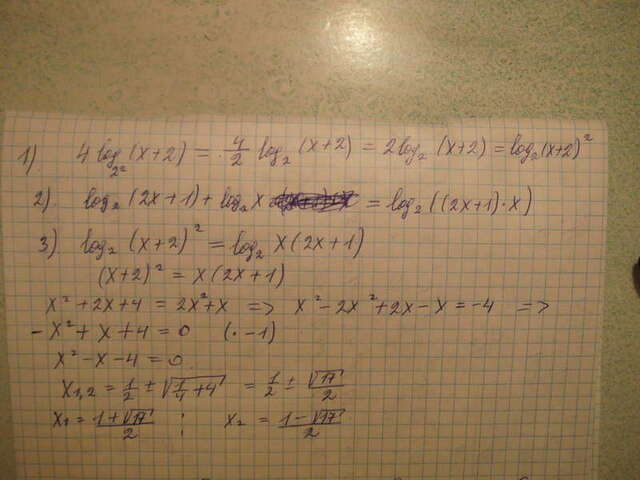 1). 4 log_{2^2} (x+2) = 4/2 log_2 (x+2) = 2 log_2 (x+2) = log_2 (x+2)^2
2). log_2 (2x+1) + log_2 x = log_2 ((2x+1)·x)
3). log_2 (x+2)^2 = log_2 x(2x+1)
(x+2)^2 = x(2x+1)
x^2 + 2x + 4 = 2x^2 + x => x^2 - 2x^2 + 2x - x = -4 =>
- x^2 + x + 4 = 0 (· -1)
x^2 - x - 4 = 0
x_{1,2} = 1/2 ± √(1/4 + 4) = 1/2 ± √17/2
x_1 = (1+√17)/2 ; x_2 = (1-√17)/2